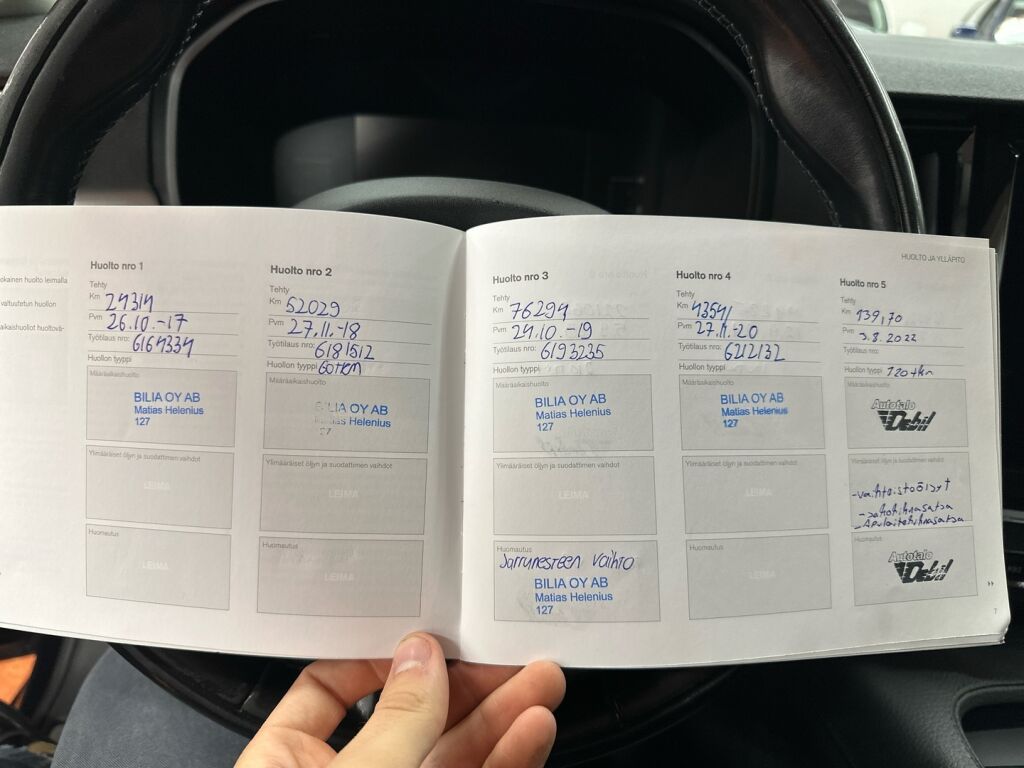 okainen huolto leimalla
valtuutetun huollon
aikaishuollot huoltovä-
Huolto nro 1
Tehty
Km 24314
Pvm 26.10.-17
Työtilaus nro: 6164334
Huollon tyyppi
Määräaikaishuolto
BILIA OY AB
Matias Helenius
127
Ylimääräiset öljyn ja suodattimen vaihdot
LEIMA
Huomautus
LEIMA
Huolto nro 2
Tehty
Km 52029
Pvm 27.11.-18
Työtilaus nro: 6181512
Huollon tyyppi 60tkm
Määräaikaishuolto
BILIA OY AB
Matias Helenius
127
Ylimääräiset öljyn ja suodattimen vaihdot
LEIMA
Huomautus
LEIMA
HUOLTO JA YLLÄPITO
Huolto nro 3
Tehty
Km 76294
Pvm 24.10.-19
Työtilaus nro: 6193235
Huollon tyyppi
Määräaikaishuolto
BILIA OY AB
Matias Helenius
127
Ylimääräiset öljyn ja suodattimen vaihdot
LEIMA
Huomautus
Jarrunesteen vaihto
BILIA OY AB
Matias Helenius
127
Huolto nro 4
Tehty
Km
Pvm 27.11.-20
Työtilaus nro: 6212132
Huollon tyyppi
Määräaikaishuolto
BILIA OY AB
Matias Helenius
127
Ylimääräiset öljyn ja suodattimen vaihdot
LEIMA
Huomautus
LEIMA
Huolto nro 5
Tehty
Km 139,70
Pvm 3.8.2022
Työtilaus nro:
Huollon tyyppi 120tkm
Määräaikaishuolto
Autotalo
Debil
Ylimääräiset öljyn ja suodattimen vaihdot
-vaihteistoöljyt
-Apulaitehihnasarja
Huomautus
Autotalo
Debil
7